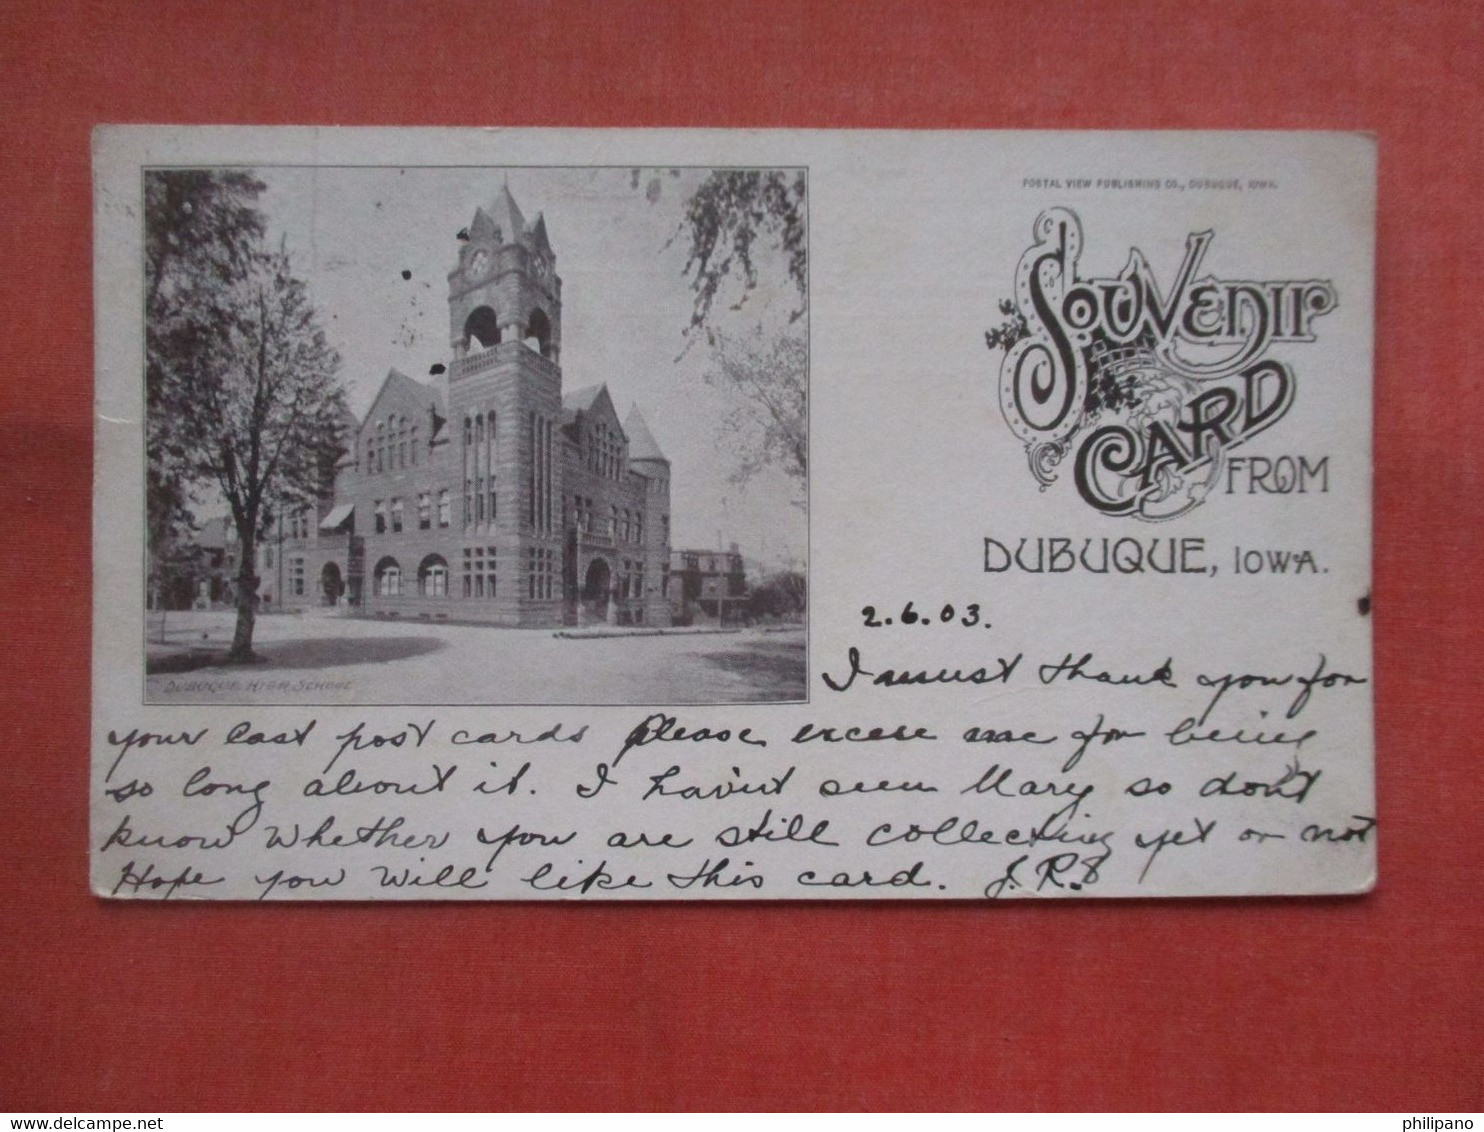 POSTAL VIEW PUBLISHING CO., DUBUQUE, IOWA.
SOUVENIR
CARD
FROM
DUBUQUE, IOWA.
DUBUQUE HIGH SCHOOL
2.6.03.
I must thank you for
your last post cards Please excuse me for being
so long about it. I hav'nt seen Mary so dont
know whether you are still collecting yet or not
Hope you will like this card. J. R.
delcampe.net
philipano